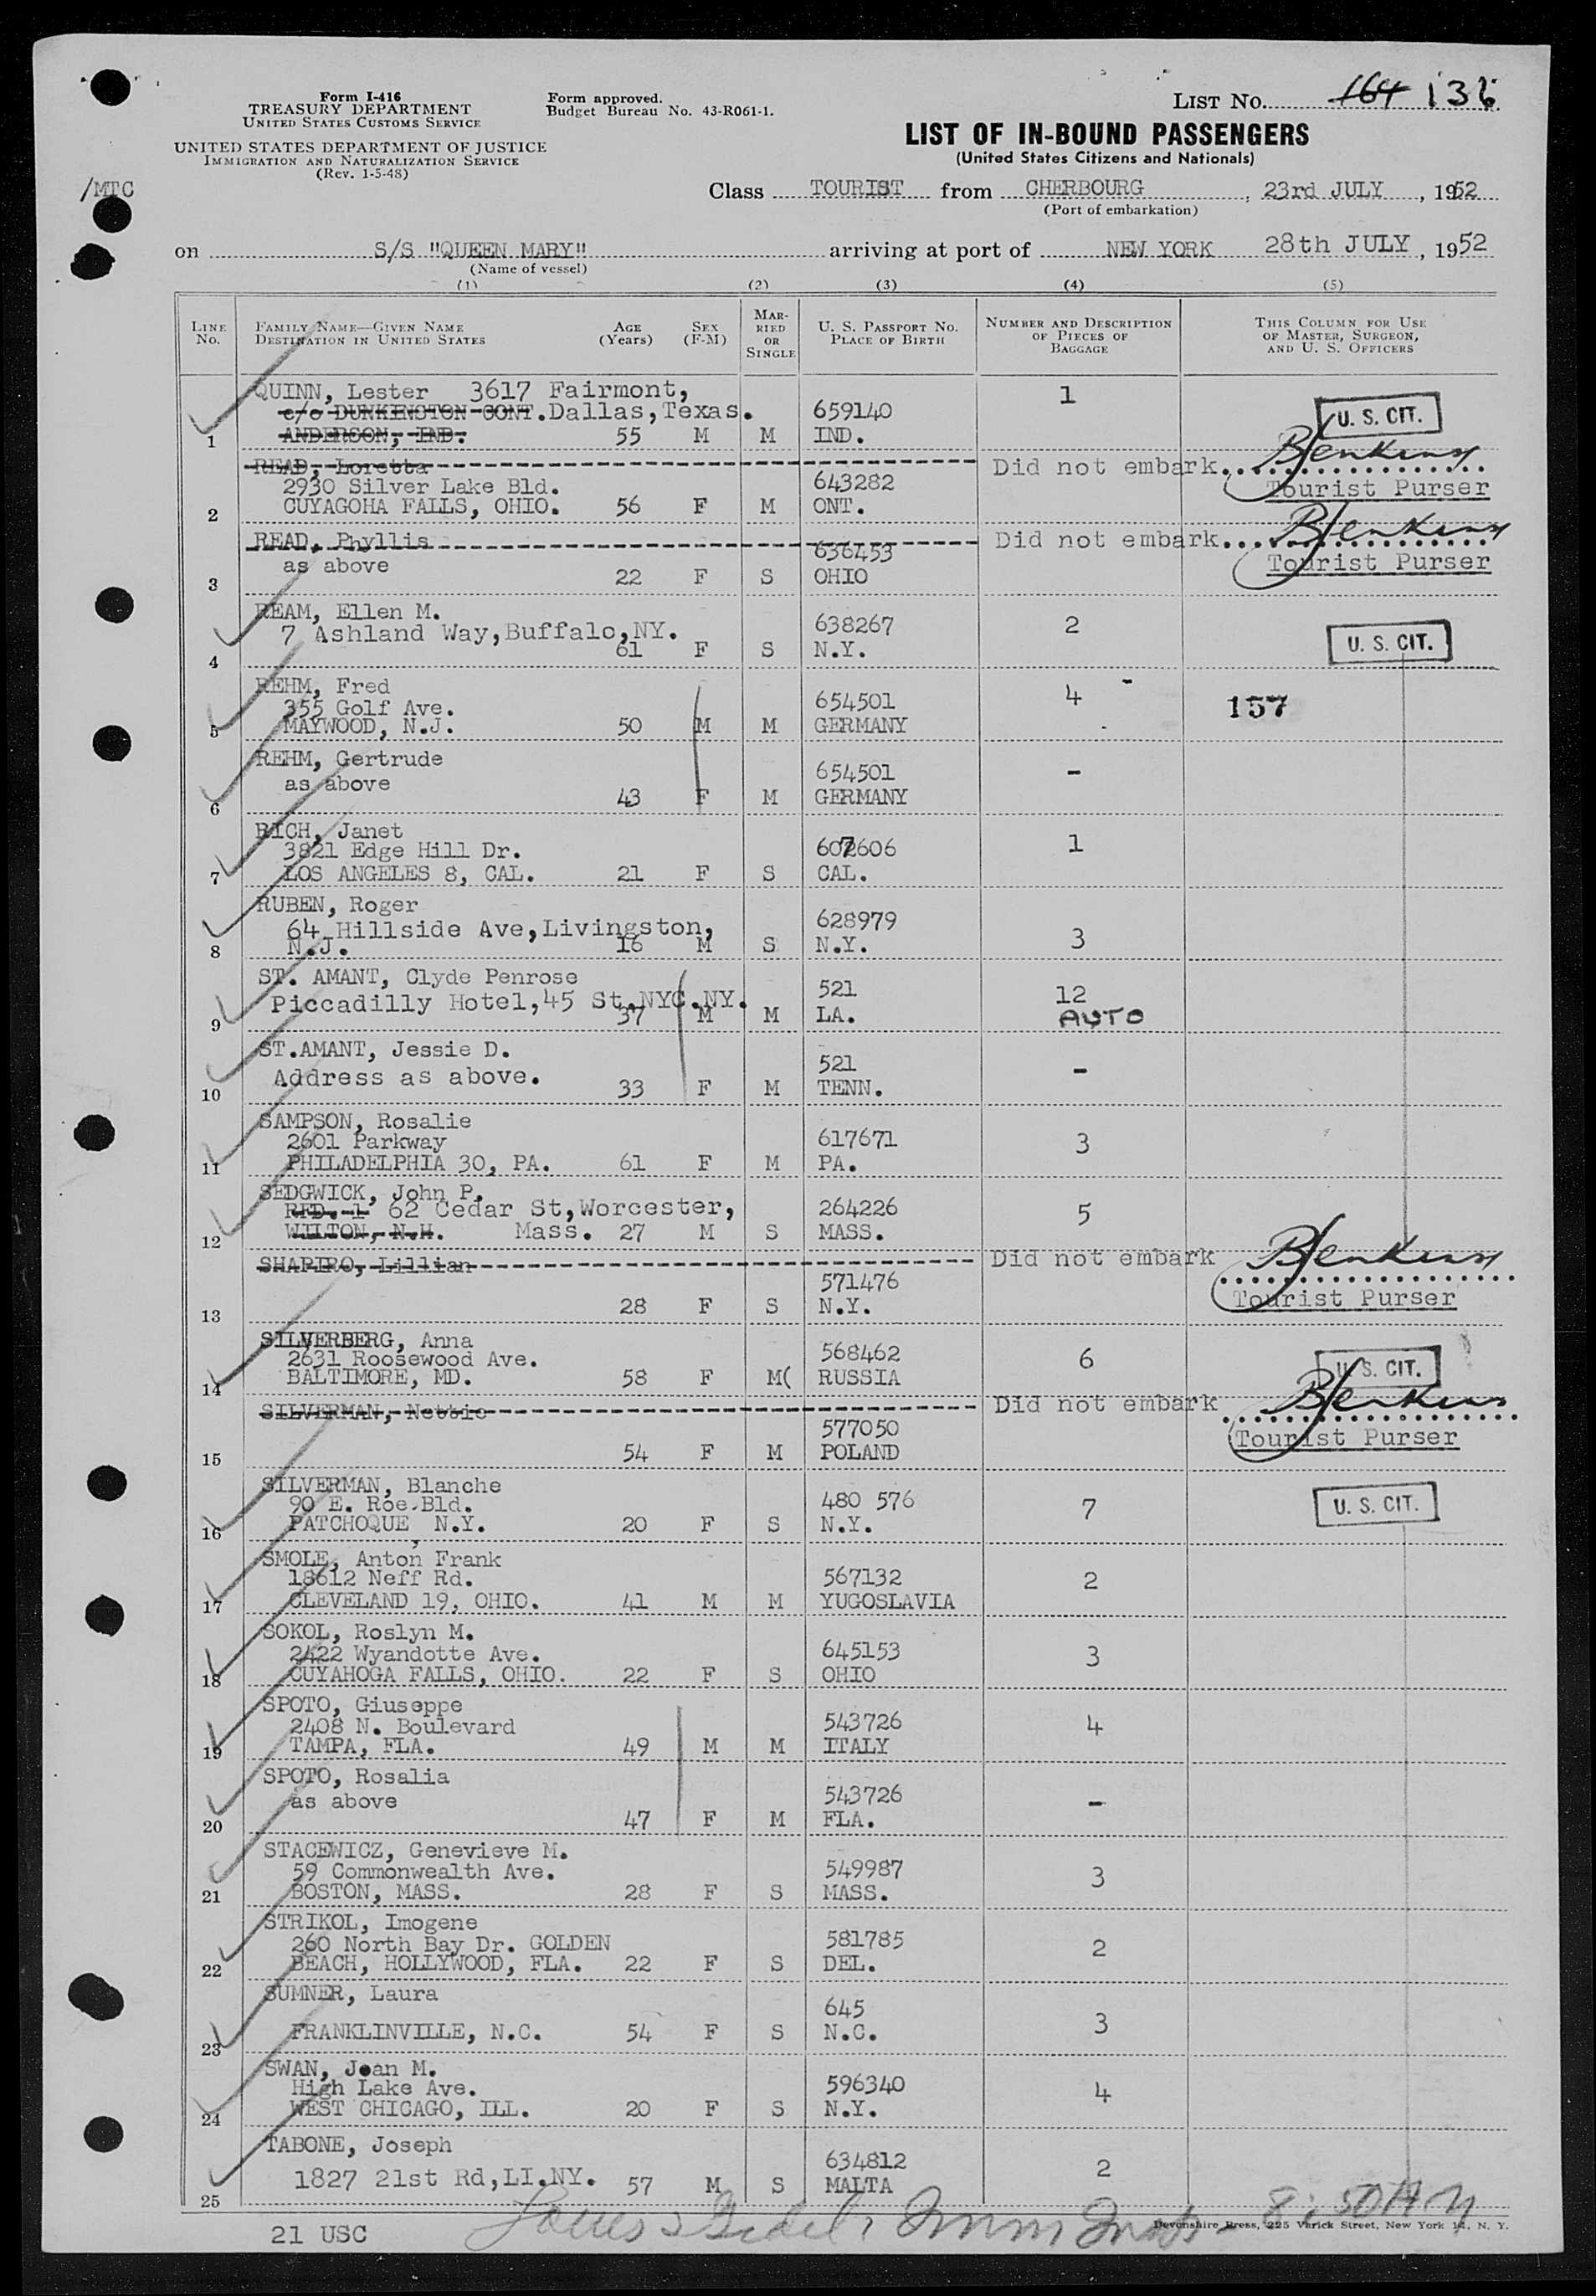 Form I-416
TREASURY DEPARTMENT
UNITED STATES CUSTOMS SERVICE
UNITED STATES DEPARTMENT OF JUSTICE
IMMIGRATION AND NATURALIZATION SERVICE
(Rev. 1-5-48)
/MTC
Form approved.
Budget Bureau No. 43-R061-1.
LIST NO. 164 136
LIST OF IN-BOUND PASSENGERS
(United States Citizens and Nationals)
Class TOURIST from CHERBOURG, 23rd JULY, 1952
(Port of embarkation)
on S/S "QUEEN MARY" arriving at port of NEW YORK 28th JULY, 1952
(Name of vessel)
(1) (2) (3) (4) (5)
LINE NO. FAMILY NAME—GIVEN NAME DESTINATION IN UNITED STATES AGE (Years) SEX (F-M) MARRIED OR SINGLE U. S. PASSPORT NO. PLACE OF BIRTH NUMBER AND DESCRIPTION OF PIECES OF BAGGAGE THIS COLUMN FOR USE OF MASTER, SURGEON, AND U. S. OFFICERS
QUINN, Lester 3617 Fairmont, 1
c/o DUNKINSTON CONT. Dallas, Texas. 659140 U. S. CIT.
1 ANDERSON, IND. 55 M M IND.
READ, Loretta Did not embark. BJenkins
2930 Silver Lake Bld. 643282 Tourist Purser
2 CUYAGOHA FALLS, OHIO. 56 F M ONT.
READ, Phyllis 636453 Did not embark. BJenkins
as above Tourist Purser
3 22 F S OHIO
REAM, Ellen M. 638267 2
7 Ashland Way, Buffalo, NY. U. S. CIT.
4 61 F S N.Y.
REHM, Fred 654501 4 157
355 Golf Ave.
5 MAYWOOD, N.J. 50 M M GERMANY
REHM, Gertrude 654501 -
as above
6 43 F M GERMANY
RICH, Janet 607606 1
3821 Edge Hill Dr.
7 LOS ANGELES 8, CAL. 21 F S CAL.
RUBEN, Roger 628979
64 Hillside Ave, Livingston,
8 N.J. 16 M S N.Y. 3
ST. AMANT, Clyde Penrose 521 12
Piccadilly Hotel, 45 St. NYC. NY. AUTO
9 37 M M LA.
ST.AMANT, Jessie D. 521 -
Address as above.
10 33 F M TENN.
SAMPSON, Rosalie 617671 3
2601 Parkway
11 PHILADELPHIA 30, PA. 61 F M PA.
SEDGWICK, John P. 264226 5
RFD. 1 62 Cedar St, Worcester,
12 WILTON, N.H. Mass. 27 M S MASS.
SHAPIRO, Lillian 571476 Did not embark BJenkins
13 28 F S N.Y. Tourist Purser
SILVERBERG, Anna 568462 6 U. S. CIT.
2631 Roosewood Ave.
14 BALTIMORE, MD. 58 F M( RUSSIA
SILVERMAN, Nettie 577050 Did not embark BJenkins
15 54 F M POLAND Tourist Purser
SILVERMAN, Blanche 480 576 7 U. S. CIT.
90 E. Roe Bld.
16 PATCHOQUE, N.Y. 20 F S N.Y.
SMOLE, Anton Frank 567132 2
18612 Neff Rd.
17 CLEVELAND 19, OHIO. 41 M M YUGOSLAVIA
SOKOL, Roslyn M. 645153 3
2422 Wyandotte Ave.
18 CUYAHOGA FALLS, OHIO. 22 F S OHIO
SPOTO, Giuseppe 543726 4
2408 N. Boulevard
19 TAMPA, FLA. 49 M M ITALY
SPOTO, Rosalia 543726 -
as above
20 47 F M FLA.
STACEWICZ, Genevieve M. 549987 3
59 Commonwealth Ave.
21 BOSTON, MASS. 28 F S MASS.
STRIKOL, Imogene 581785 2
260 North Bay Dr. GOLDEN
22 BEACH, HOLLYWOOD, FLA. 22 F S DEL.
SUMNER, Laura 645 3
23 FRANKLINVILLE, N.C. 54 F S N.C.
SWAN, Joan M. 596340 4
High Lake Ave.
24 WEST CHICAGO, ILL. 20 F S N.Y.
TABONE, Joseph 634812 2
1827 21st Rd, LI.NY. 57 M S MALTA
25
21 USC 8:50AM
Devonshire Press, 225 Varick Street, New York 14, N. Y.